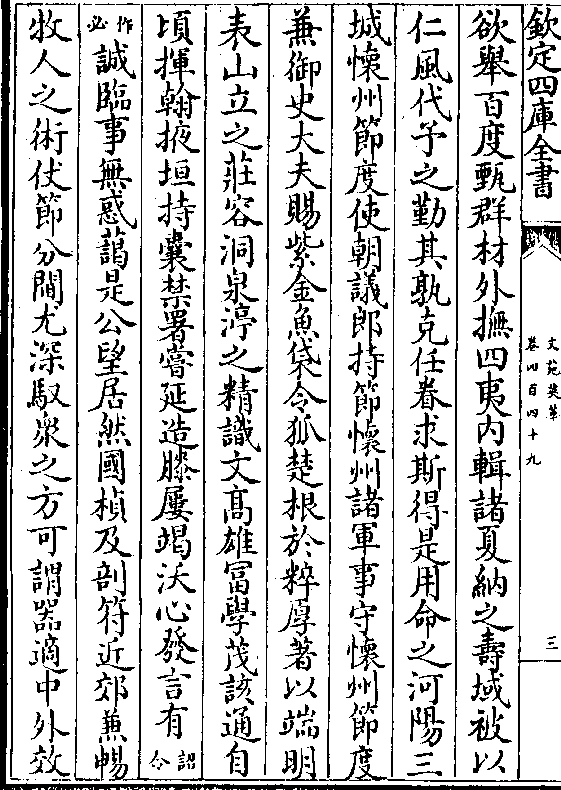 欽定四庫全書
文苑英華
卷四百四十九
三
欲舉百度甄群材外撫四夷内輯諸夏納之壽域被以
仁風代予之勤其孰克任眷求斯得是用命之河陽三
城懷州節度使朝議郎持節懷州諸軍事守懷州節度
兼御史大夫賜紫金魚袋令狐楚根於粹厚著以端明
表山立之莊容洞泉渟之精識文髙雄冨學茂該通自
頃揮翰掖垣持囊禁署嘗延造膝屢竭沃心發言有詔令
作必誠臨事無惑藹是公望居然國楨及剖符近郊兼暢
牧人之術仗節分閫尤深馭衆之方可謂器適中外效